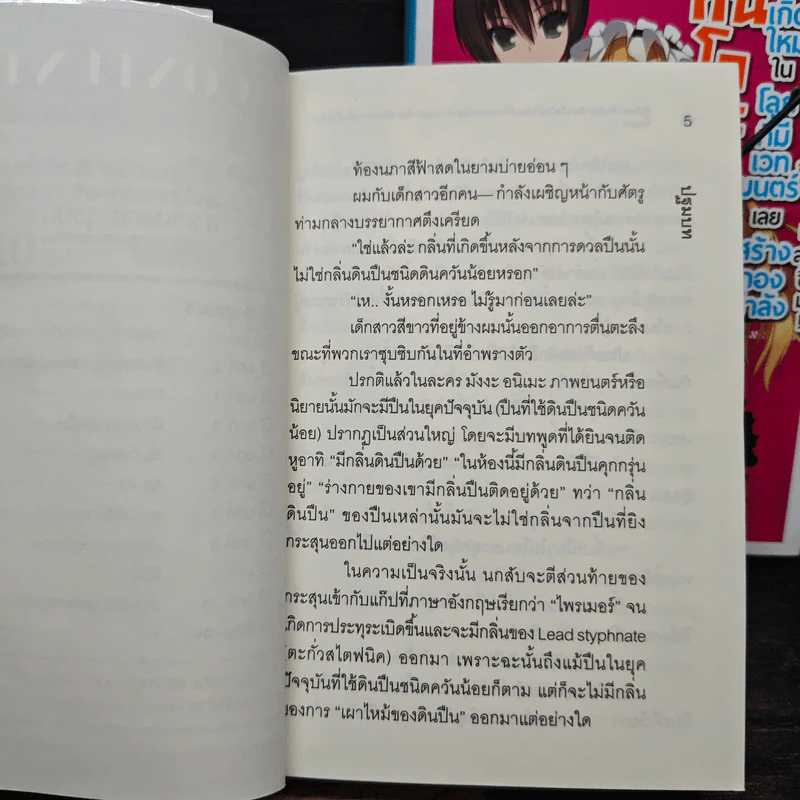 CONTENT
5
ปฐมบท
ท้องนภาสีฟ้าสดในยามบ่ายอ่อน ๆ
ผมกับเด็กสาวอีกคน— กำลังเผชิญหน้ากับศัตรู
ท่ามกลางบรรยากาศตึงเครียด
“ใช่แล้วล่ะ กลิ่นที่เกิดขึ้นหลังจากการดวลปืนนั้น
ไม่ใช่กลิ่นดินปืนชนิดดินควันน้อยหรอก”
“เห.. งั้นหรอกเหรอ ไม่รู้มาก่อนเลยล่ะ”
เด็กสาวสีขาวที่อยู่ข้างผมนั้นออกอาการตื่นตะลึง
ขณะที่พวกเราซุบซิบกันในที่อำพรางตัว
ปรกติแล้วในละคร มังงะ อนิเมะ ภาพยนตร์หรือ
นิยายนั้นมักจะมีปืนในยุคปัจจุบัน (ปืนที่ใช้ดินปืนชนิดควัน
น้อย) ปรากฏเป็นส่วนใหญ่ โดยจะมีบทพูดที่ได้ยินจนติด
หูอาทิ “มีกลิ่นดินปืนด้วย” “ในห้องนี้มีกลิ่นดินปืนคุกกรุ่น
อยู่” “ร่างกายของเขามีกลิ่นปืนติดอยู่ด้วย” ทว่า “กลิ่น
ดินปืน” ของปืนเหล่านั้นมันจะไม่ใช่กลิ่นจากปืนที่ยิง
กระสุนออกไปแต่อย่างใด
ในความเป็นจริงนั้น นกสับจะตีส่วนท้ายของ
กระสุนเข้ากับแก๊ปที่ภาษาอังกฤษเรียกว่า “ไพรเมอร์” จน
เกิดการประทุระเบิดขึ้นและจะมีกลิ่นของ Lead styphnate
(ตะกั่วสไตฟนิค) ออกมา เพราะฉะนั้นถึงแม้ปืนในยุค
ปัจจุบันที่ใช้ดินปืนชนิดควันน้อยก็ตาม แต่ก็จะไม่มีกลิ่น
ของการ “เผาไหม้ของดินปืน” ออกมาแต่อย่างใด
เกิด
ใหม่
ใน
โลก
ที่มี
เวท
มนตร์
เลย
สร้าง
กอง
กำลัง